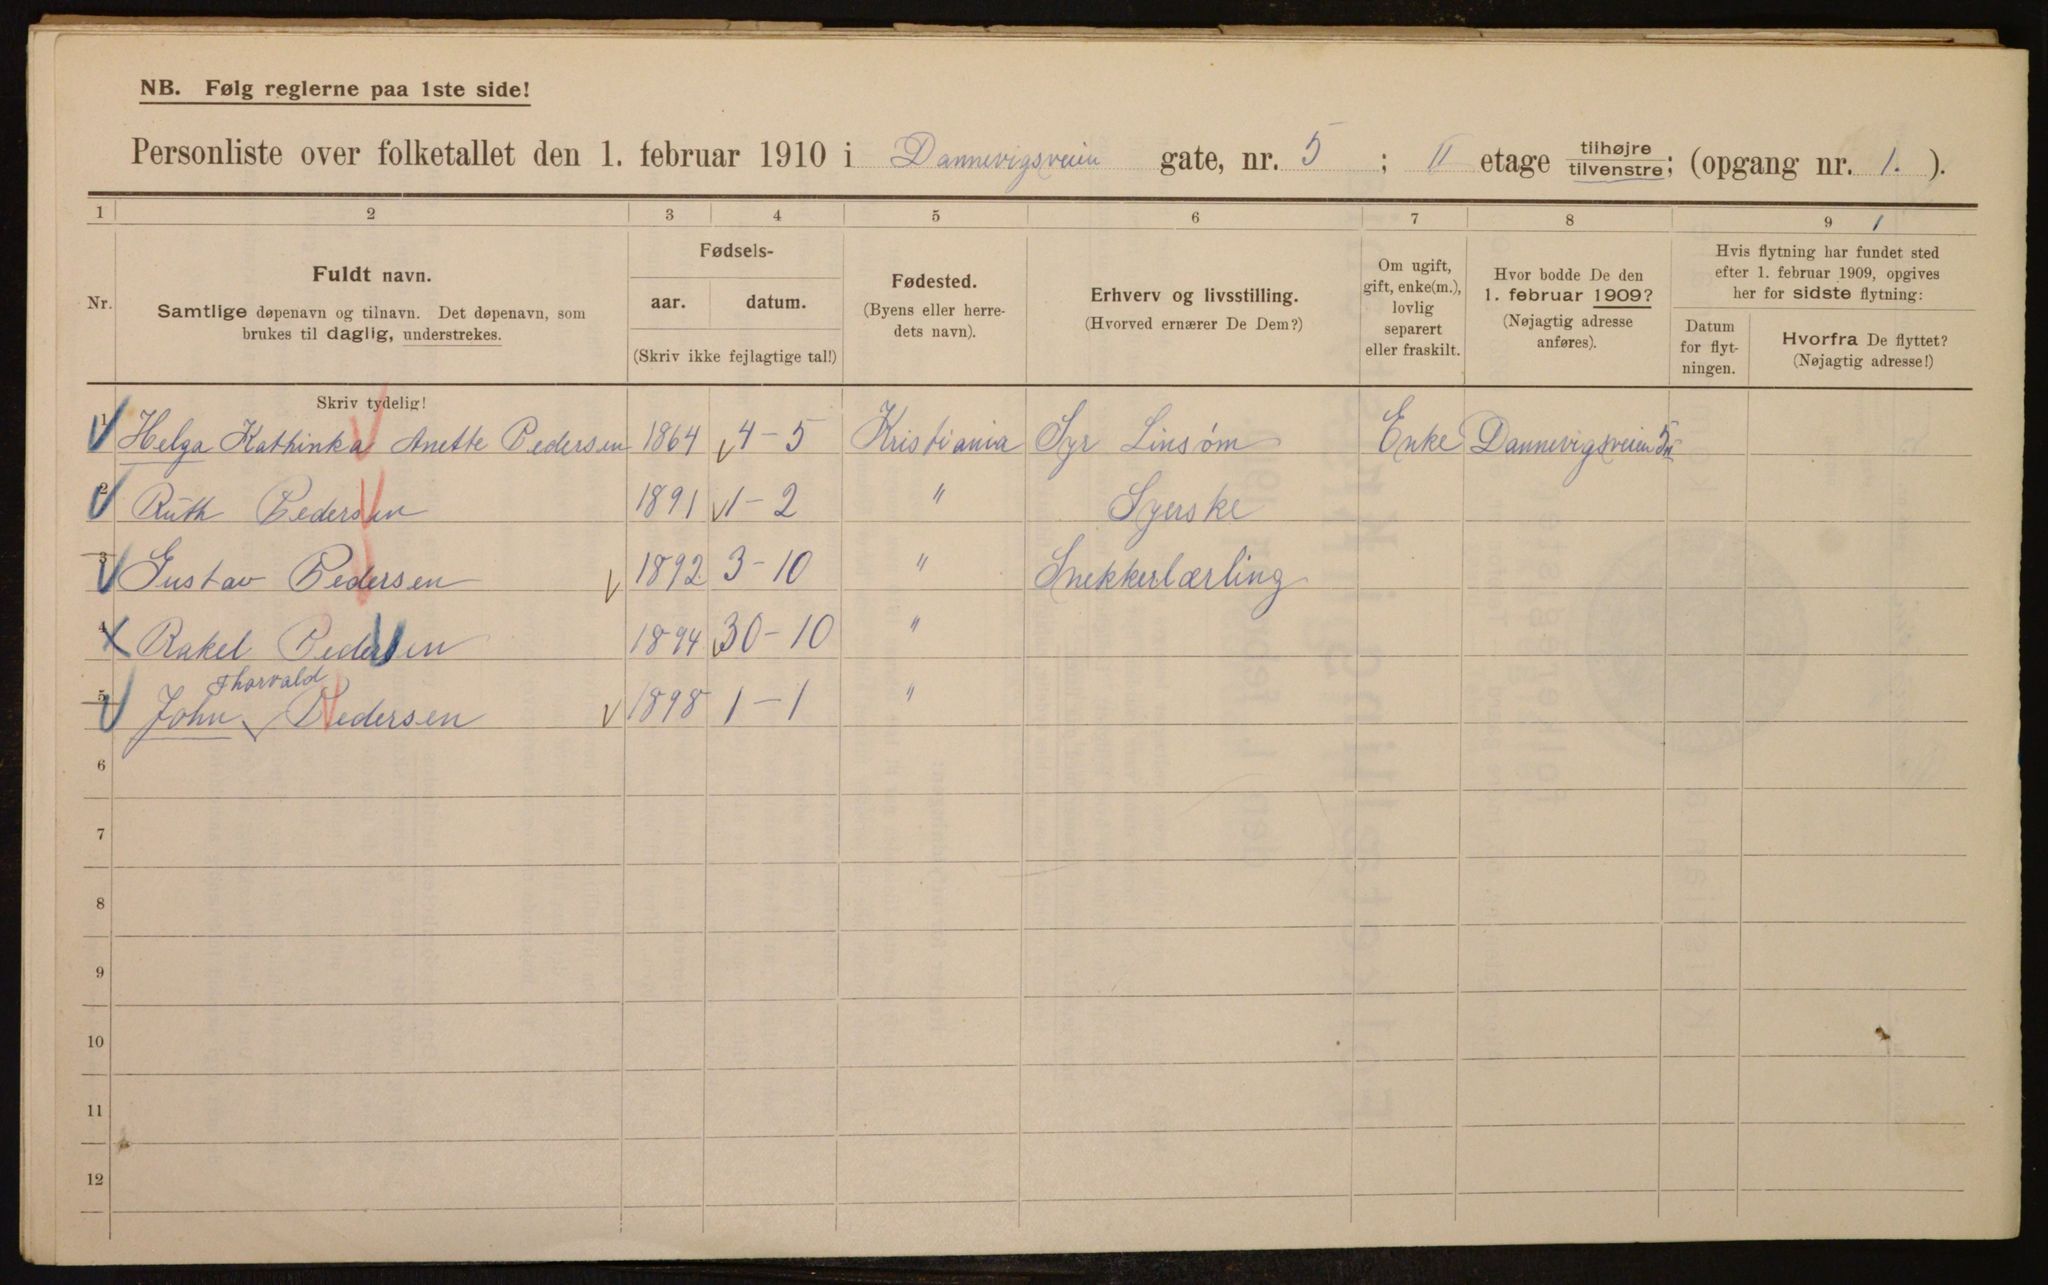 NB. Følg reglerne paa 1ste side!
Personliste over folketallet den 1. februar 1910 i Dannevigsveien gate, nr. 5 ; II etage tilhøjre / tilvenstre; (opgang nr. 1. ).
1 2 3 4 5 6 7 8 9 1
Nr.
Fuldt navn.
Samtlige døpenavn og tilnavn. Det døpenavn, som
brukes til daglig, understrekes.
Skriv tydelig!
Fødsels-
aar. datum.
(Skriv ikke fejlagtige tal!)
Fødested.
(Byens eller herre-
dets navn).
Erhverv og livsstilling.
(Hvorved ernærer De Dem?)
Om ugift,
gift, enke(m.),
lovlig
separert
eller fraskilt.
Hvor bodde De den
1. februar 1909?
(Nøjagtig adresse
anføres).
Hvis flytning har fundet sted
efter 1. februar 1909, opgives
her for sidste flytning:
Datum
for flyt-
ningen.
Hvorfra De flyttet?
(Nøjagtig adresse!)
1 Helga Kathinka Anette Pedersen 1864 4-5 Kristiania Syr Linsøm Enke Dannevigsveien 5
2 Ruth Pedersen 1891 1-2 " Syerske
3 Gustav Pedersen 1892 3-10 " Snekkerlærling
4 Rakel Pedersen 1894 30-10 "
Thorvald
5 John Pedersen 1898 1-1 "
6
7
8
9
10
11
12